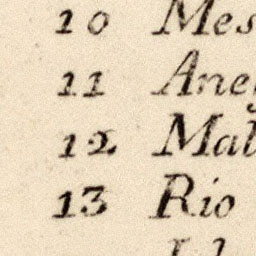 10 Mes
11 Ane
12 Mal
13 Rio